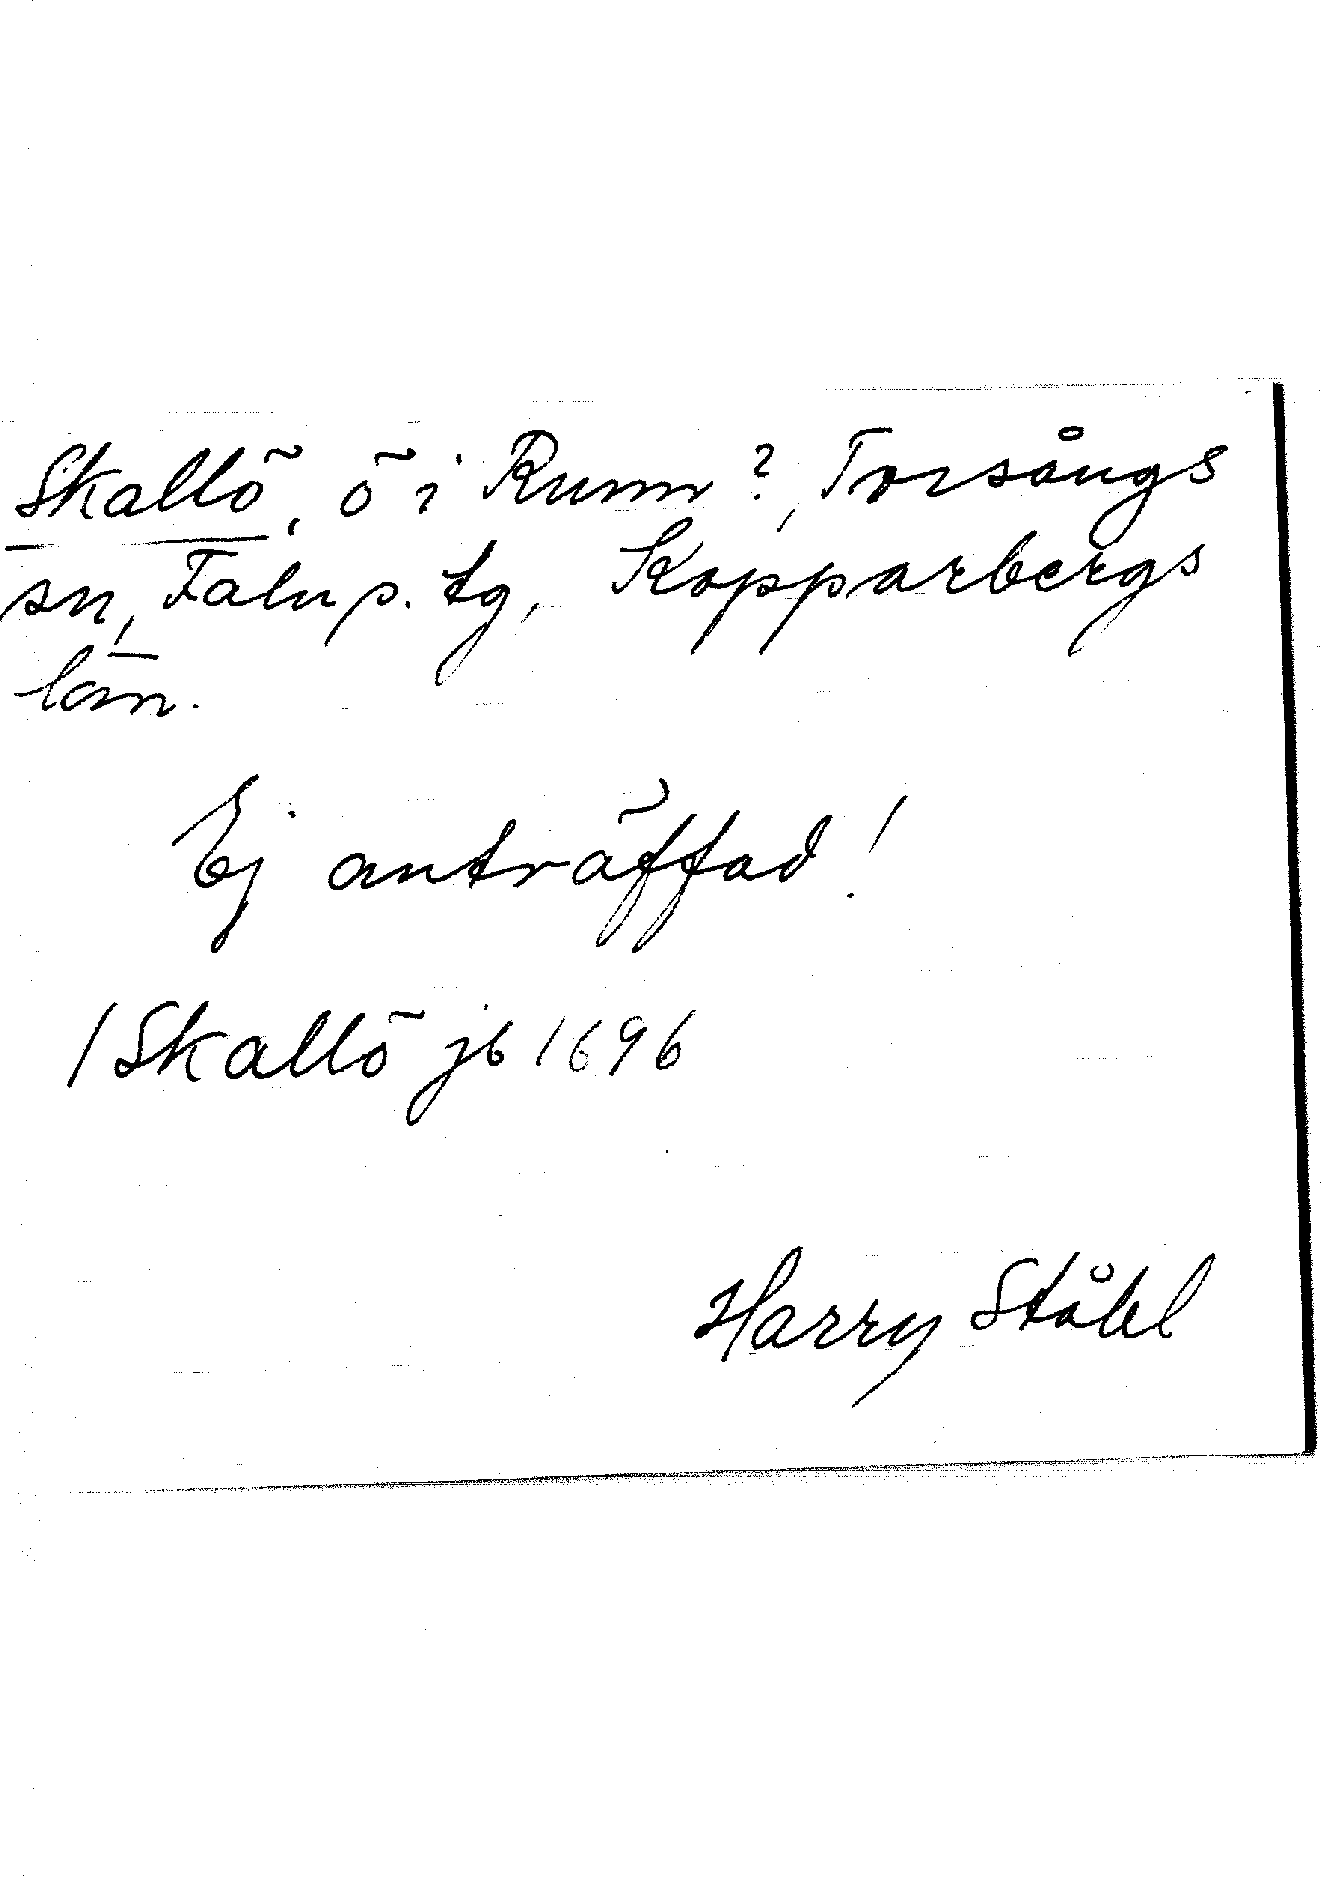 Skallö, ö i Runn?, Torsångs
sn, Falu p. tg, Kopparbergs
län.
Ej anträffad!
/Skallö jb 1696
Harry Ståhl